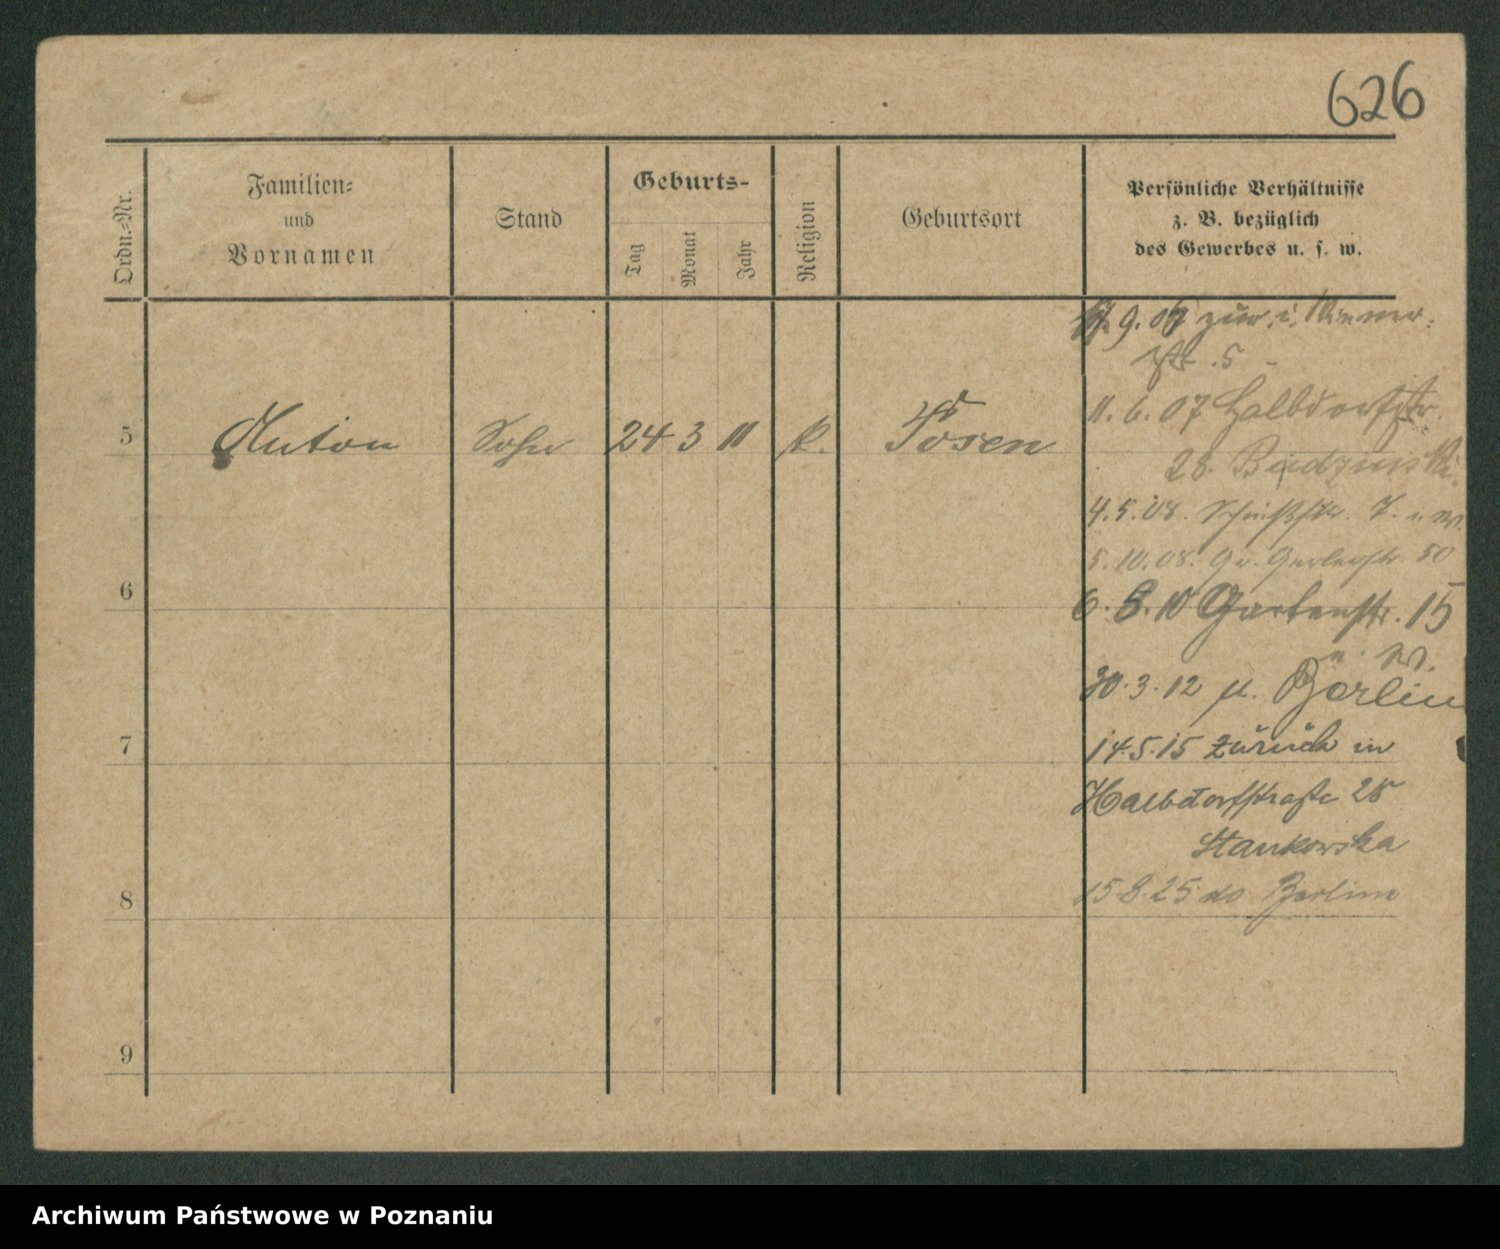 626
Ordn.-Nr.
Familien-
und
Vornamen
Stand
Geburts-
Tag
Monat
Jahr
Religion
Geburtsort
Persönliche Verhältnisse
z. B. bezüglich
des Gewerbes u. s. w.
9. 07 zur. i.
5
11. 6. 07 Halbdorfstr.
28. Budzinski.
5 Anton Sohn 24 3 11 k. Posen
4. 5. 08. Schießstr. 7.
5. 10. 08. Gr. Gerberstr. 50
6
6. 8. 10 Gartenstr. 15
u. W.
30. 3. 12 n. Berlin
7
14. 5. 15 zurück in
Halbdorfstraße 28
Stankowska
8
15 8. 25 do Berlina
9
Archiwum Państwowe w Poznaniu